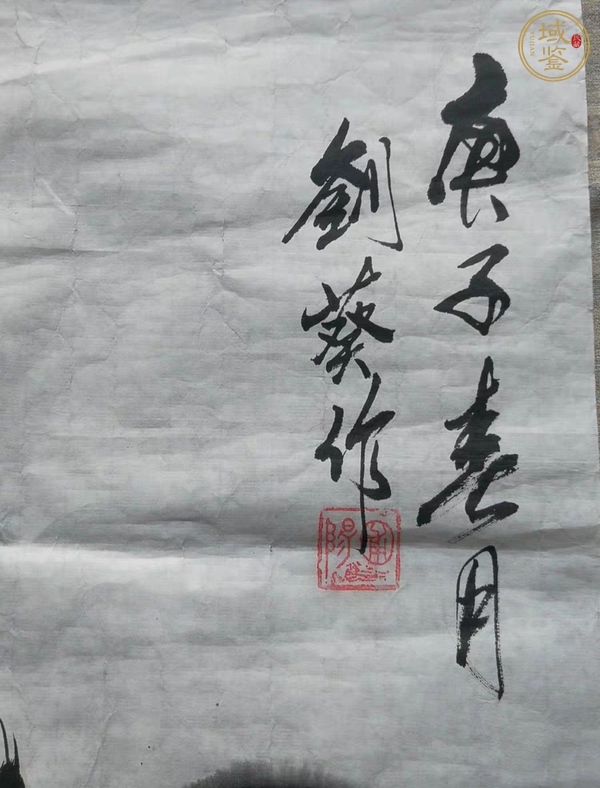 庚子春月
劉葵作
域鉴